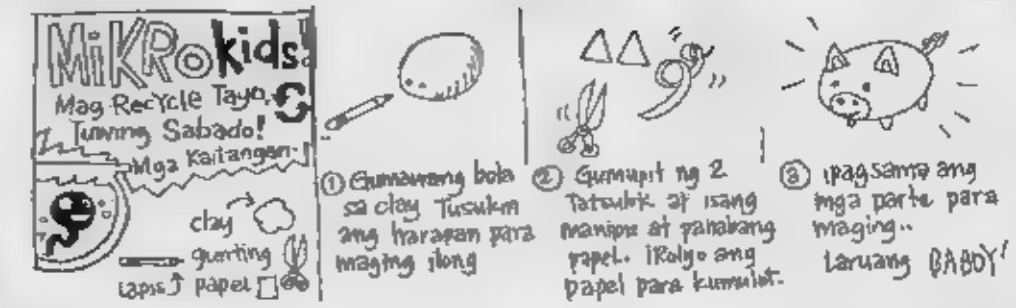 MiKRokids!
Mag Recycle Tayo,
Tuwing Sabado!
Mga Kaitangan:
clay
gunting
lapis papel
① Gumawang bola
sa clay Tusukin
ang harapan para
maging ilong
② Gumupit ng 2
Tatsulok at isang
manipis at pahabang
papel. iRolyo ang
papel para kumulot.
③ ipagsama ang
mga parte para
maging..
Laruang BABOY!